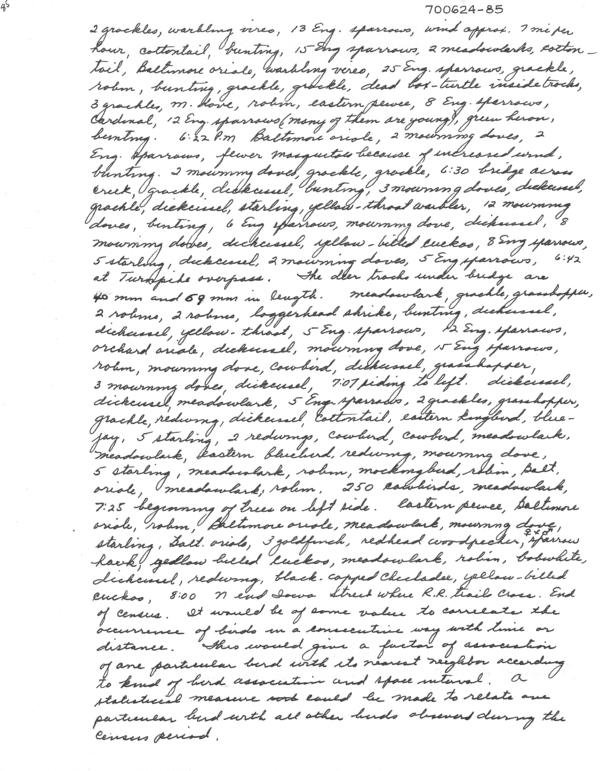 700624-85
2 grackles, warbling vireo, 13 Eng. sparrows, wind approx. 7 mi per
hour, cottontail, bunting, 15 Eng sparrows, 2 meadowlarks, cotton-
tail, Baltimore oriole, warbling vireo, 25 Eng. sparrows, grackle,
robin, bunting, grackle, grackle, dead box-turtle inside tracks,
3 grackles, m. dove, robin, eastern pewee, 8 Eng. sparrows,
Cardinal, 12 Eng. sparrows (many of them are young), green heron,
bunting. 6:22 P.M Baltimore oriole, 2 mourning doves, 2
Eng. sparrows, fewer mosquitoes because of increased wind,
bunting. 2 mourning doves, grackle, grackle, 6:30 bridge across
creek, grackle, dickcissel, bunting, 3 mourning doves, dickcissel,
grackle, dickcissel, starling, yellow-throat warbler, 12 mourning
doves, bunting, 6 Eng sparrows, mourning dove, dickcissel, 8
mourning doves, dickcissel, yellow-billed cuckoo, 8 Eng sparrows,
5 starling, dickcissel, 2 mourning doves, 5 Eng sparrows, 6:42
at Turnpike overpass. The deer tracks under bridge are
40 mm and 59 mm in length. meadowlark, grackle, grasshopper,
2 robins, 2 robins, loggerhead shrike, bunting, dickcissel,
dickcissel, yellow-throat, 5 Eng. sparrows, 12 Eng. sparrows,
orchard oriole, dickcissel, mourning dove, 15 Eng sparrows,
robin, mourning dove, cowbird, dickcissel, grasshopper,
3 mourning doves, dickcissel, 7:07 siding to left. dickcissel,
dickcissel, meadowlark, 5 Eng. sparrows, 2 grackles, grasshopper,
grackle, redwing, dickcissel, cottontail, eastern kingbird, blue-
jay, 5 starling, 2 redwings, cowbird, cowbird, meadowlark,
meadowlark, eastern bluebird, redwing, mourning dove,
5 starling, meadowlark, robin, mockingbird, robin, Balt.
oriole, meadowlark, robin, 250 cowbirds, meadowlark,
7:25 beginning of trees on left side. Eastern pewee, Baltimore
oriole, robin, Baltimore oriole, meadowlark, mourning dove,
starling, Balt. oriole, 3 goldfinch, redhead woodpecker, sparrow
hawk, yellow billed cuckoo, meadowlark, robin, bobwhite,
dickcissel, redwing, black-capped chickadee, yellow-billed
cuckoo, 8:00 N end Iowa Street where R.R. trail cross. End
of census. It would be of some value to correlate the
occurrence of birds in a consecutive way with time or
distance. This would give a factor of association
of one particular bird with its nearest neighbor according
to kind of bird association and space interval. A
statistical measure could be made to relate one
particular bird with all other birds observed during the
census period.